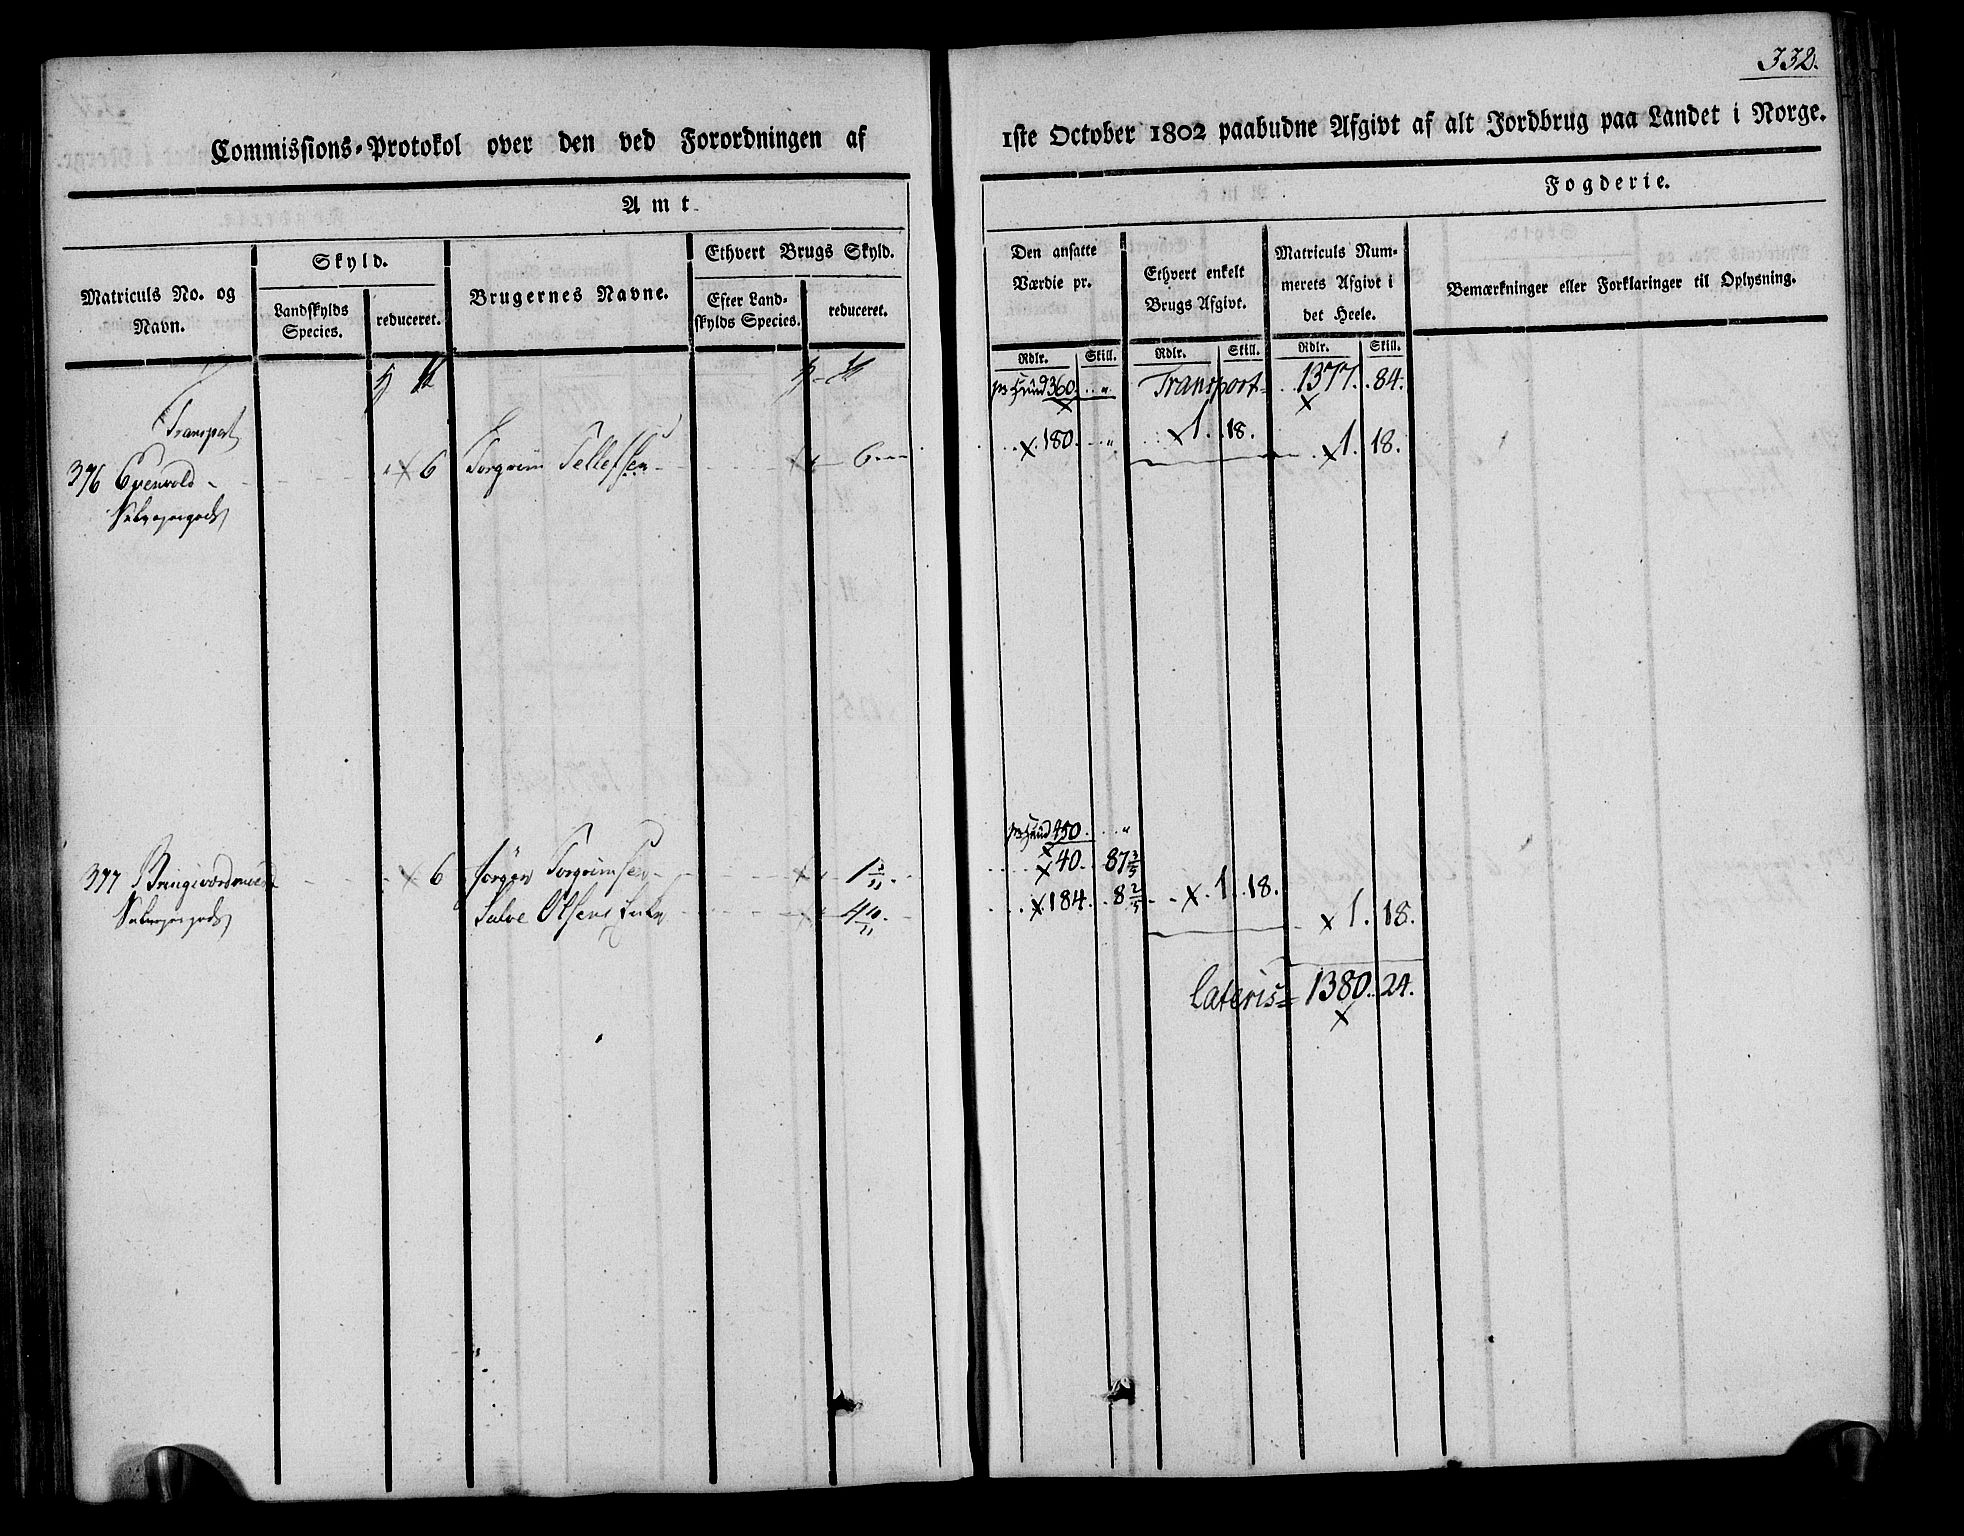 332.
Commissions-Protokol over den ved Forordningen af
1ste October 1802 paabudne Afgivt af alt Jordbrug paa Landet i Norge.
Amt
Fogderie.
Matriculs No. og Navn.
Skyld.
Landskylds Species.
reduceret.
Brugernes Navne.
Ethvert Brugs Skyld.
Efter Landskylds Species.
reduceret.
Den ansatte Værdie pr.
Ethvert enkelt Brugs Afgivt.
Matriculs Nummerets Afgivt i det Heele.
Bemærkninger eller Forklaringer til Oplysning.
Rdlr. Skill. Rdlr. Skill. Rdlr. Skill.
pr Hud 360. " Transport 1377. 84.
Transport
376 Evenvold 6 Torgrim Tellefsen 6 180. " 1. 18. 1. 18.
Selvejergods
pr Hud 450. "
377 6 Jörgen Torgrimsen 1 1/11 40. 87 3/5
Selvejergods Salve Olsens Enke 4 10/11 184. 8 2/5 1. 18. 1. 18.
Lateris 1380. 24.